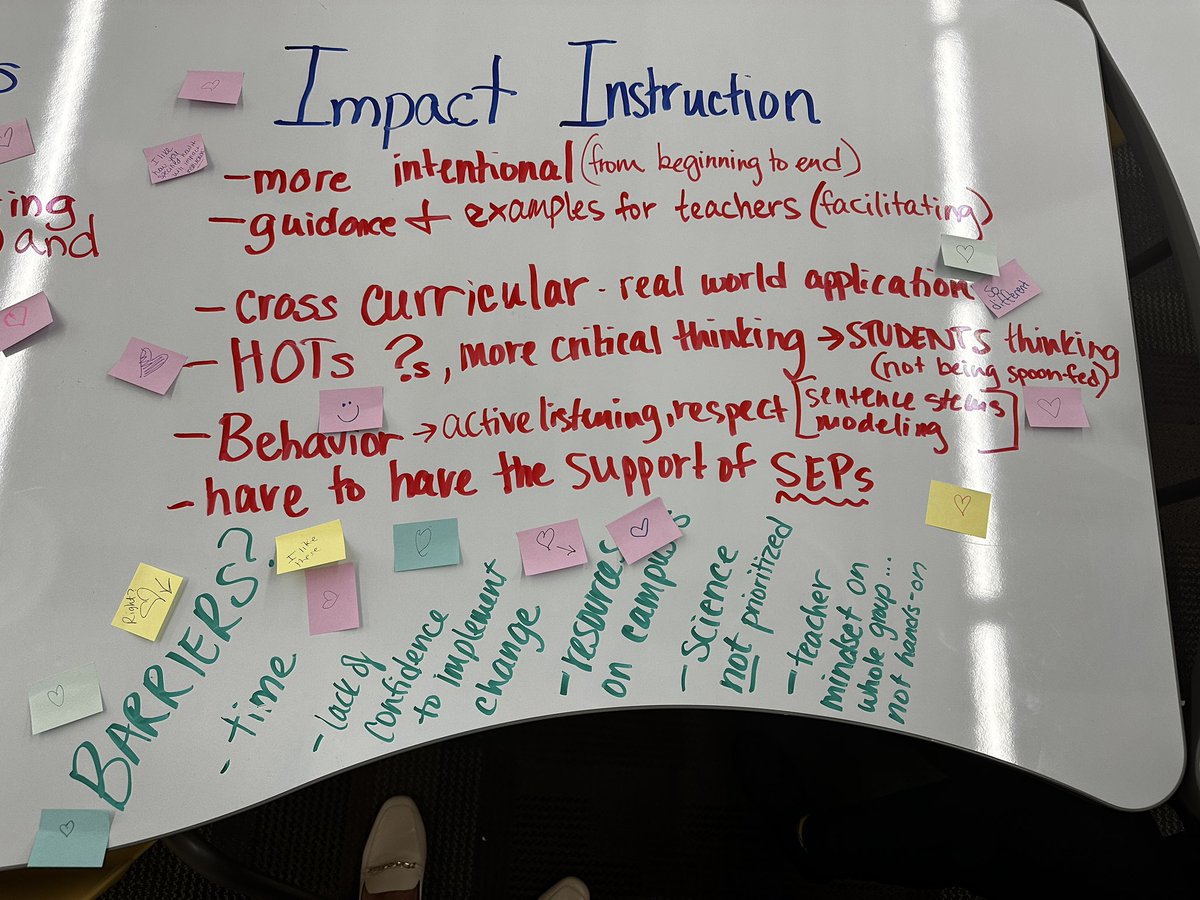 s
ing
and
Impact Instruction
I like
how you
- more intentional (from beginning to end)
- guidance + examples for teachers (facilitating)
- cross curricular - real world application
So
different
- HOTs ?s, more critical thinking → STUDENTS thinking
(not being spoon-fed)
- Behavior → active listening, respect [sentence stems
modeling]
- have to have the support of SEPs
BARRIERS?
Right?
I like
these
- time
- lack of
confidence
to implement
change
- resources
on campus
- Science
not prioritized
- teacher
mindset on
whole group ...
not hands-on